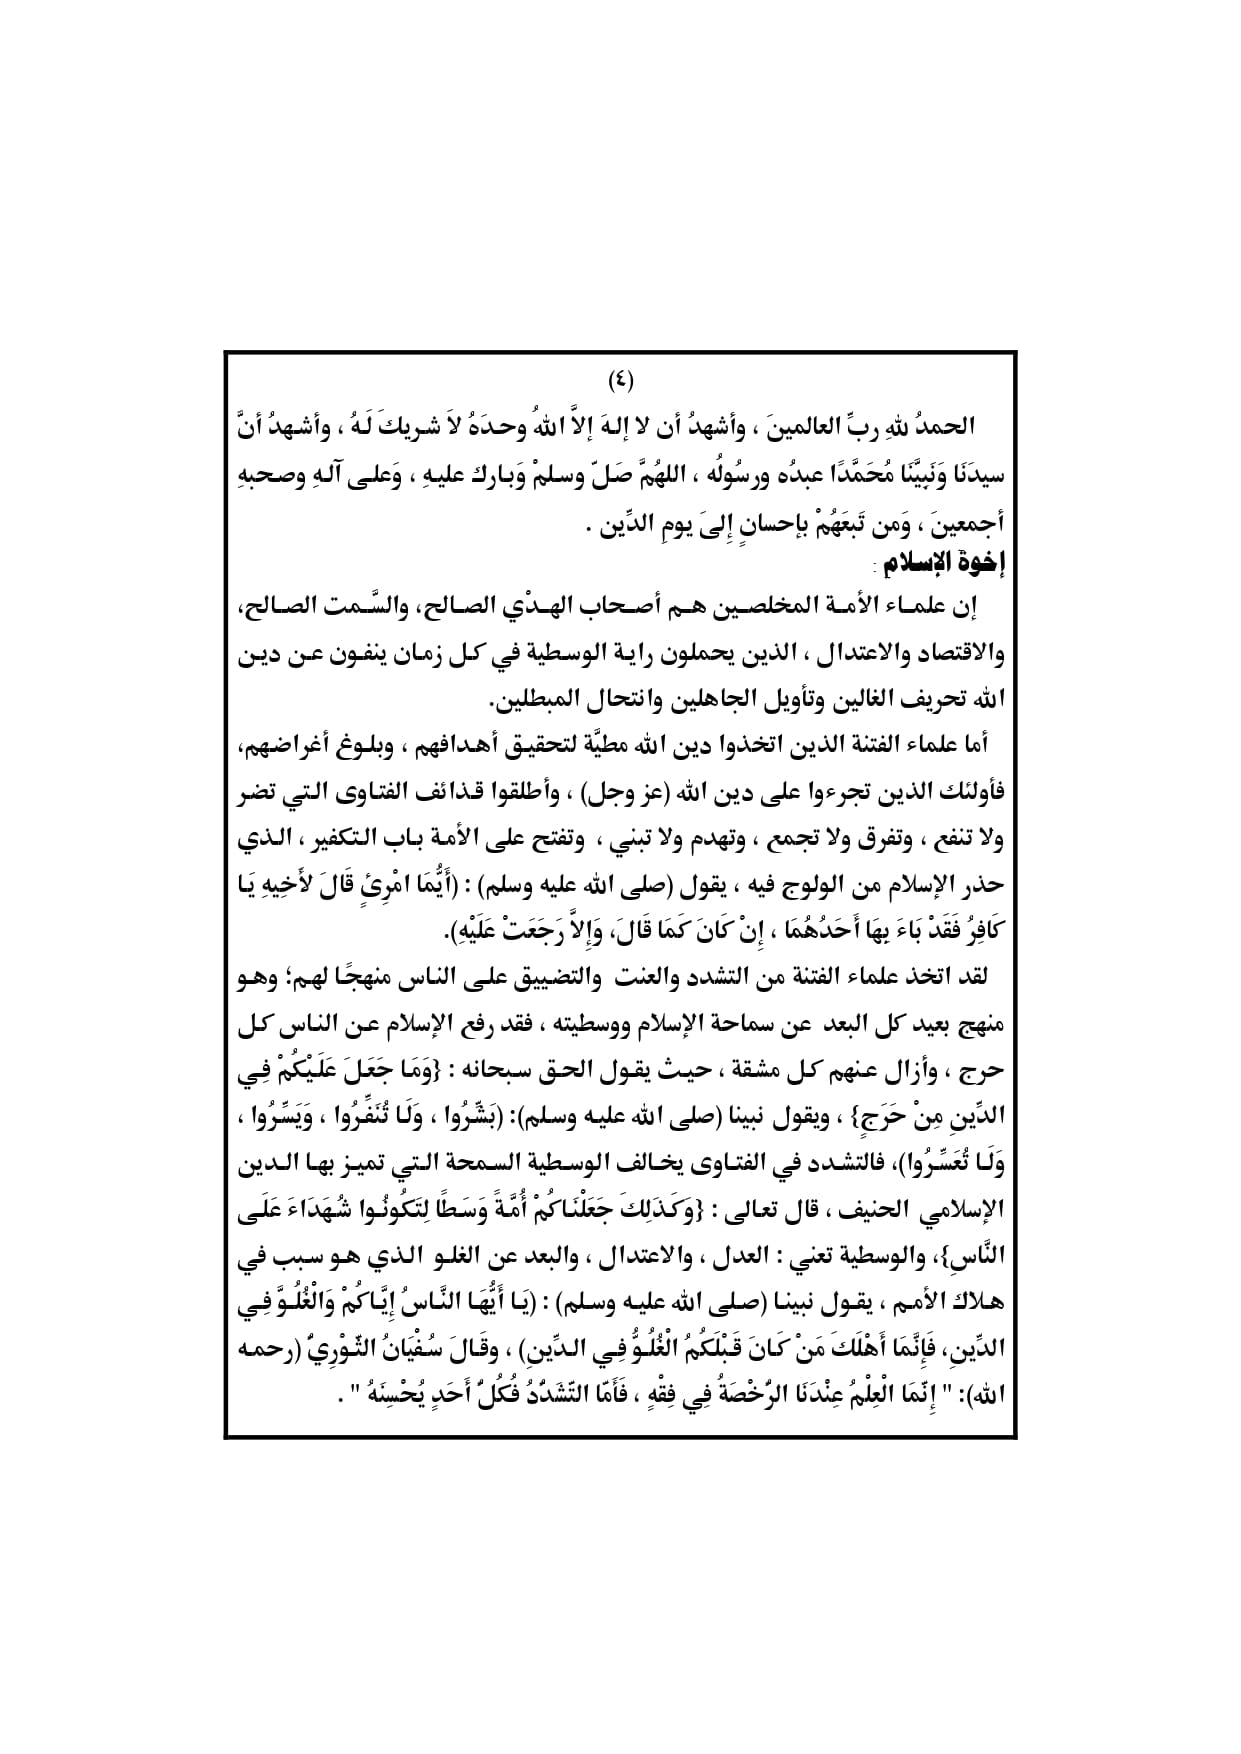 (٤)
الحمدُ للهِ ربِّ العالمينَ ، وأشهدُ أن لا إلهَ إلاَّ اللهُ وحدَهُ لاَ شريكَ لَهُ ، وأشهدُ أنَّ
سيدَنَا وَنَبِيَّنَا مُحَمَّدًا عبدُه ورسُولُه ، اللهُمَّ صَلّ وسلمْ وَبارك عليهِ ، وَعلى آلهِ وصحبهِ
أجمعينَ ، وَمن تَبعَهُمْ بإحسانٍ إِلىَ يومِ الدِّين .
إخوة الإسلام :
إن علماء الأمة المخلصين هم أصحاب الهدْي الصالح، والسَّمت الصالح،
والاقتصاد والاعتدال ، الذين يحملون راية الوسطية في كل زمان ينفون عن دين
الله تحريف الغالين وتأويل الجاهلين وانتحال المبطلين.
أما علماء الفتنة الذين اتخذوا دين الله مطيَّة لتحقيق أهدافهم ، وبلوغ أغراضهم،
فأولئك الذين تجرءوا على دين الله (عز وجل) ، وأطلقوا قذائف الفتاوى التي تضر
ولا تنفع ، وتفرق ولا تجمع ، وتهدم ولا تبني ، وتفتح على الأمة باب التكفير ، الذي
حذر الإسلام من الولوج فيه ، يقول (صلى الله عليه وسلم) : (أَيُّمَا امْرِئٍ قَالَ لأَخِيهِ يَا
كَافِرُ فَقَدْ بَاءَ بِهَا أَحَدُهُمَا ، إِنْ كَانَ كَمَا قَالَ، وَإِلاَّ رَجَعَتْ عَلَيْهِ).
لقد اتخذ علماء الفتنة من التشدد والعنت والتضييق على الناس منهجًا لهم؛ وهو
منهج بعيد كل البعد عن سماحة الإسلام ووسطيته ، فقد رفع الإسلام عن الناس كل
حرج ، وأزال عنهم كل مشقة ، حيث يقول الحق سبحانه : {وَمَا جَعَلَ عَلَيْكُمْ فِي
الدِّينِ مِنْ حَرَجٍ} ، ويقول نبينا (صلى الله عليه وسلم): (بَشِّرُوا ، وَلَا تُنَفِّرُوا ، وَيَسِّرُوا ،
وَلَا تُعَسِّرُوا)، فالتشدد في الفتاوى يخالف الوسطية السمحة التي تميز بها الدين
الإسلامي الحنيف ، قال تعالى : {وَكَذَلِكَ جَعَلْنَاكُمْ أُمَّةً وَسَطًا لِتَكُونُوا شُهَدَاءَ عَلَى
النَّاسِ}، والوسطية تعني : العدل ، والاعتدال ، والبعد عن الغلو الذي هو سبب في
هلاك الأمم ، يقول نبينا (صلى الله عليه وسلم) : (يَا أَيُّهَا النَّاسُ إِيَّاكُمْ وَالْغُلُوَّ فِي
الدِّينِ، فَإِنَّمَا أَهْلَكَ مَنْ كَانَ قَبْلَكُمُ الْغُلُوُّ فِي الدِّينِ) ، وقَالَ سُفْيَانُ الثّوْرِيّ (رحمه
الله): " إِنّمَا الْعِلْمُ عِنْدَنَا الرّخْصَةُ فِي فِقْهٍ ، فَأَمّا التّشَدّدُ فُكُلّ أَحَدٍ يُحْسِنَهُ " .